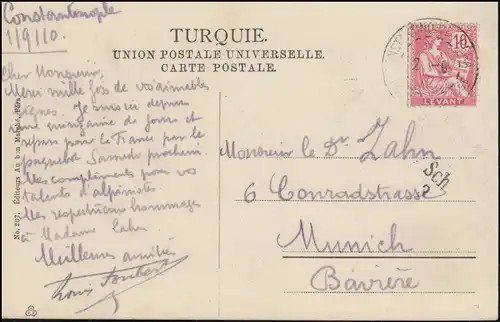 Constantinople
1/9/10.
TURQUIE.
UNION POSTALE UNIVERSELLE.
CARTE POSTALE.
Cher Monsieur,
Merci mille fois de vos aimables
lignes. Je suis ici depuis
une quinzaine de jours et
repars pour la France par le
paquebot Samedi prochain.
Mes compliments pour vos
talents d'alpinistes.
Mes respectueux hommages
à Madame Zahn.
Meilleures amitiés
Louis
No. 707. Editeurs Au bon Marché, Péra
10
LEVANT
Monsieur le Dr Zahn
Sch.
2
6 Conradstrasse
Munich
Bavière